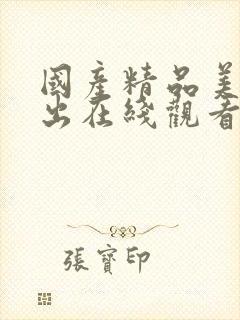 國產精品美
出在綫觀看
張寶印